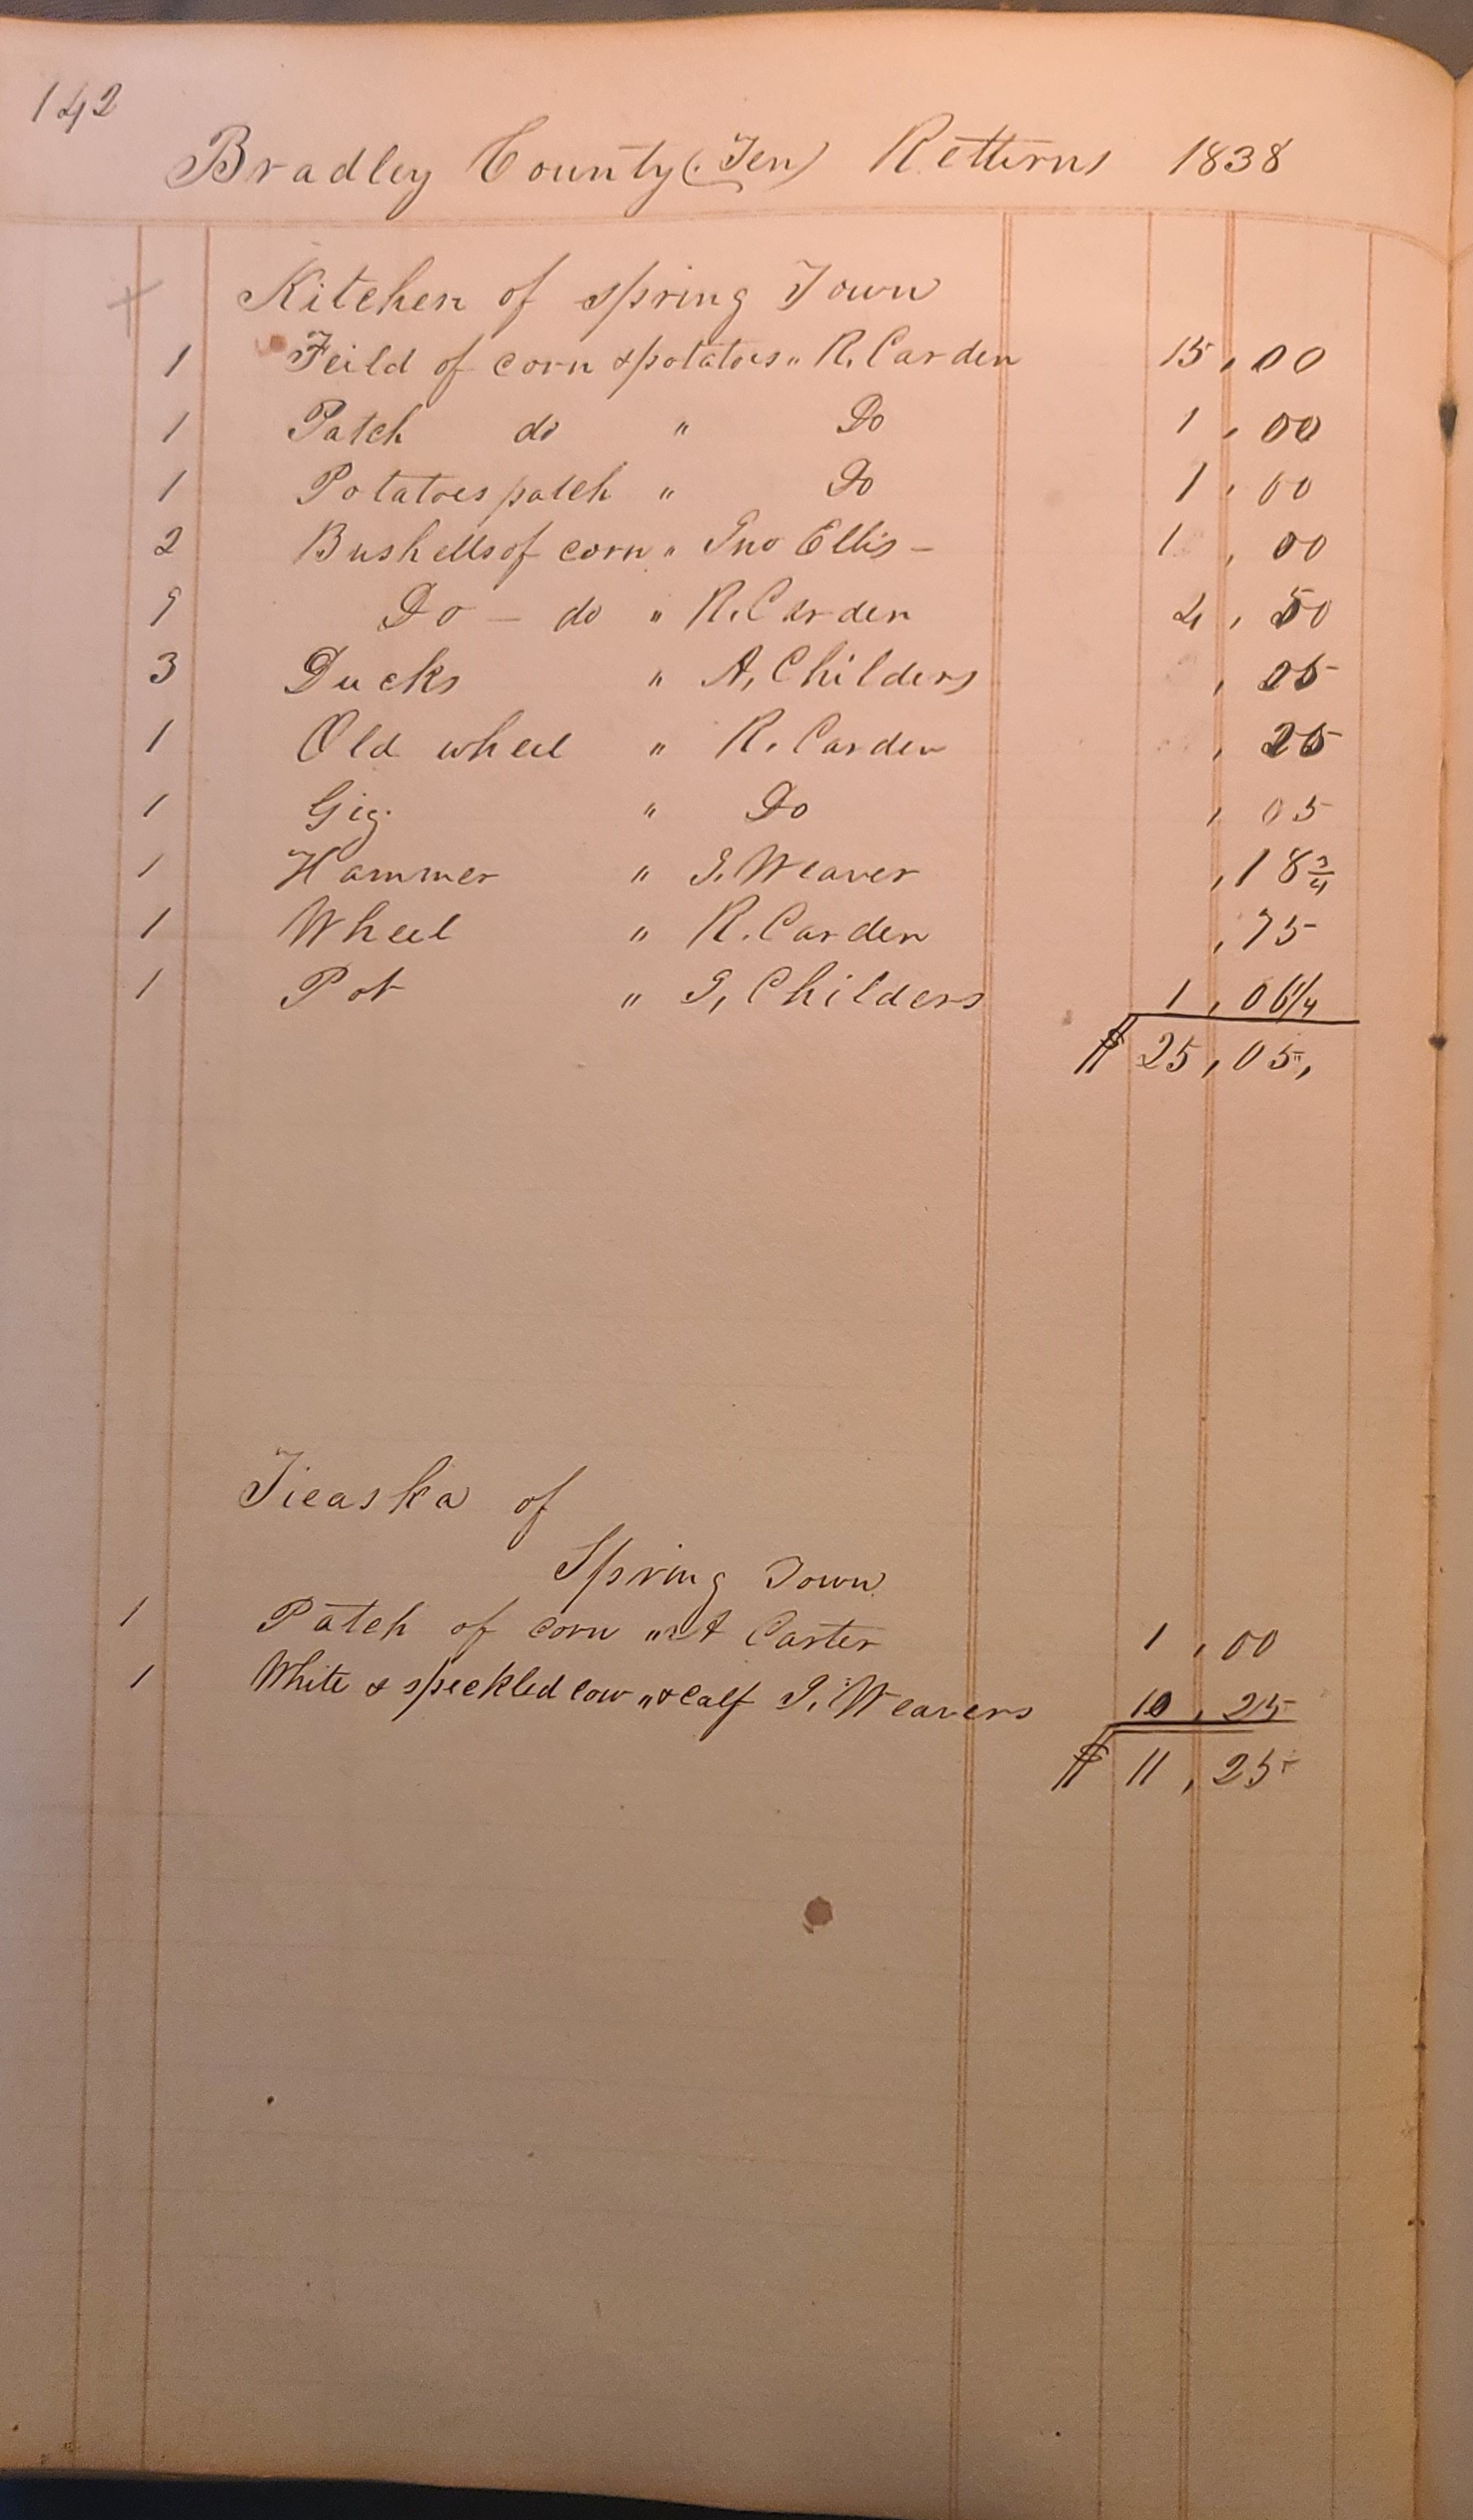 142
Bradley County (Ten) Retturns 1838
Kitchen of Spring Town
1 Feild of corn & potatoes " R. Carden 15,00
1 Patch do " Do 1,00
1 Potatoes patch " Do 1,00
2 Bushells of corn " Jno Ellis - 1,00
9 Do - do " R. Carden 4,50
3 Ducks " A, Childers ,25
1 Old wheel " R. Carden ,25
1 Gig " Do ,05
1 Hammer " J. Weaver ,18 3/4
1 Wheel " R. Carden ,75
1 Pot " J, Childers 1,06 1/4
$ 25,05,
of
Spring Town
1 Patch of corn " Carter 1,00
1 White & speckled cow " & calf J. Weavers 10,25
$ 11,25